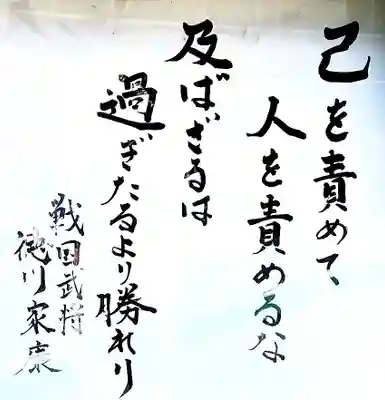 己を責めて
人を責めるな
及ばざるは
過ぎたるより勝れり
戦国武将
徳川家康